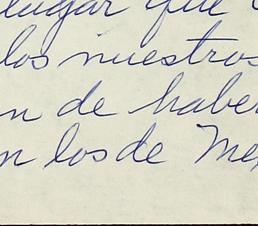 lugar que
los nuestros
n de haber
n los de Me